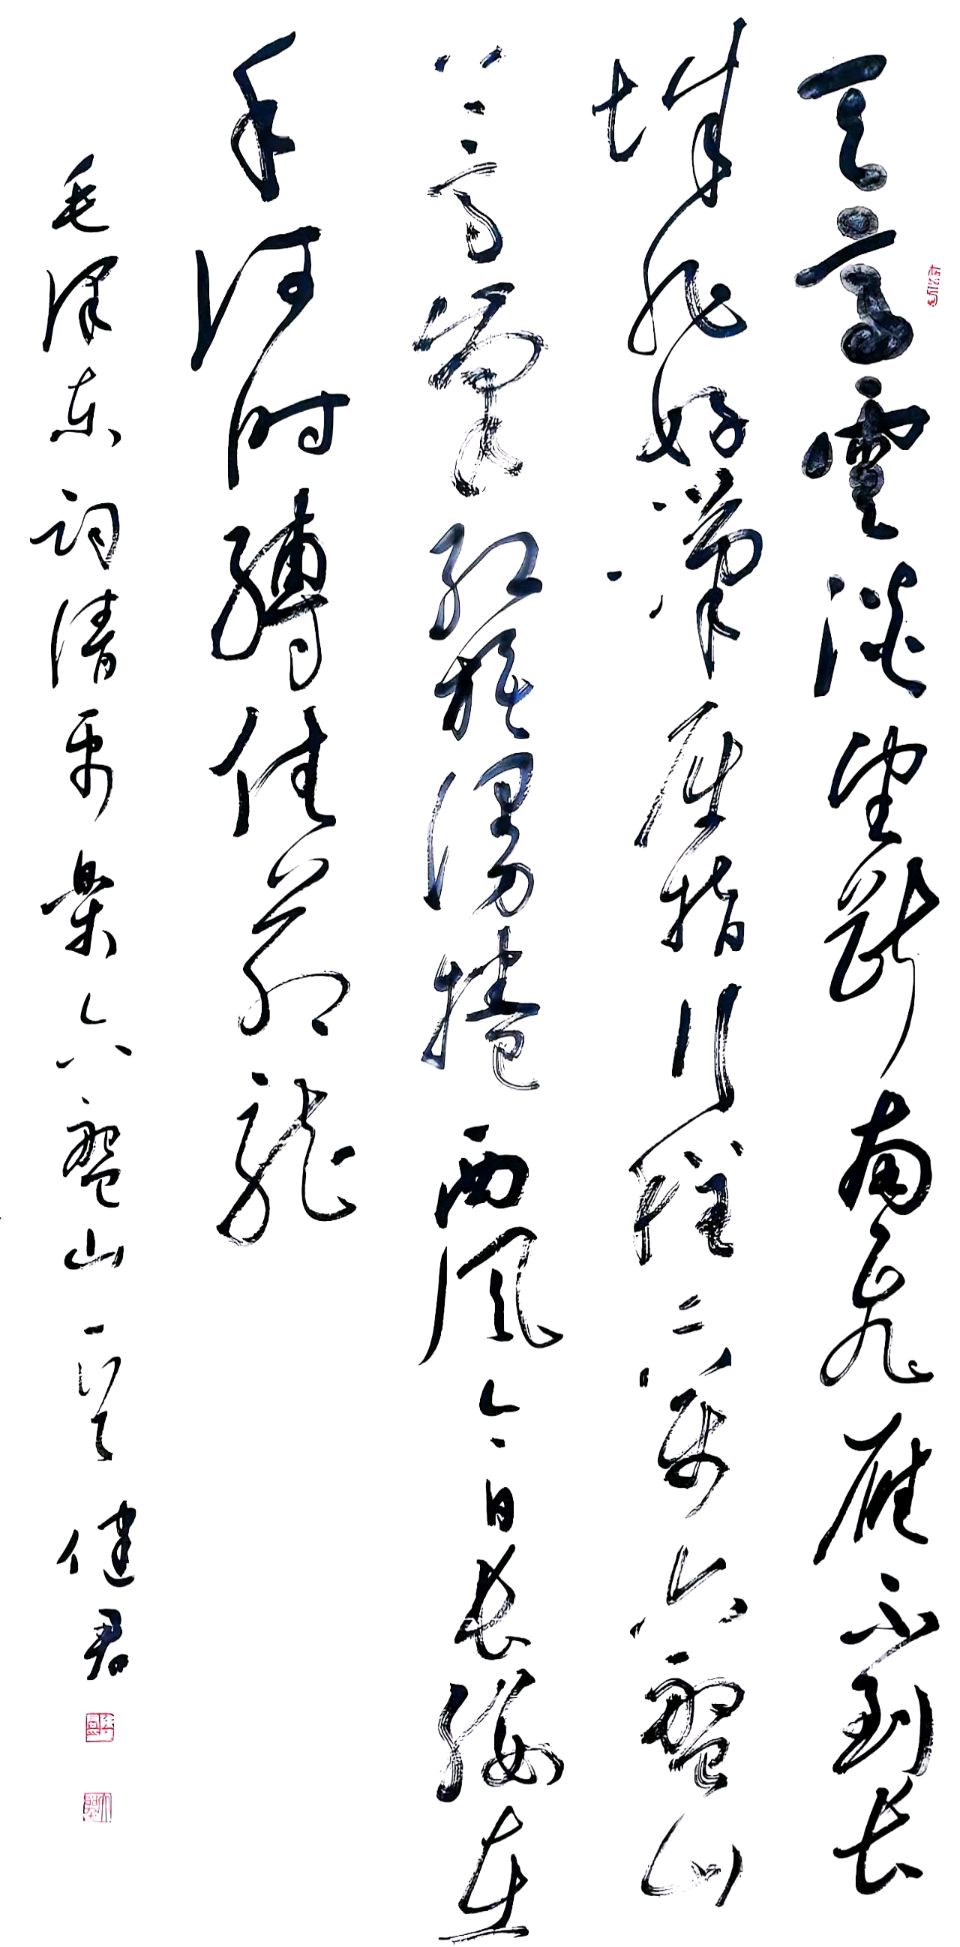 天高雲淡望断南飛雁不到长
城非好漢屈指行程二萬六盤山
上高峰红旗漫捲西風今日长缨在
手何时缚住苍龍
毛泽东词清平樂六盤山一首 健君